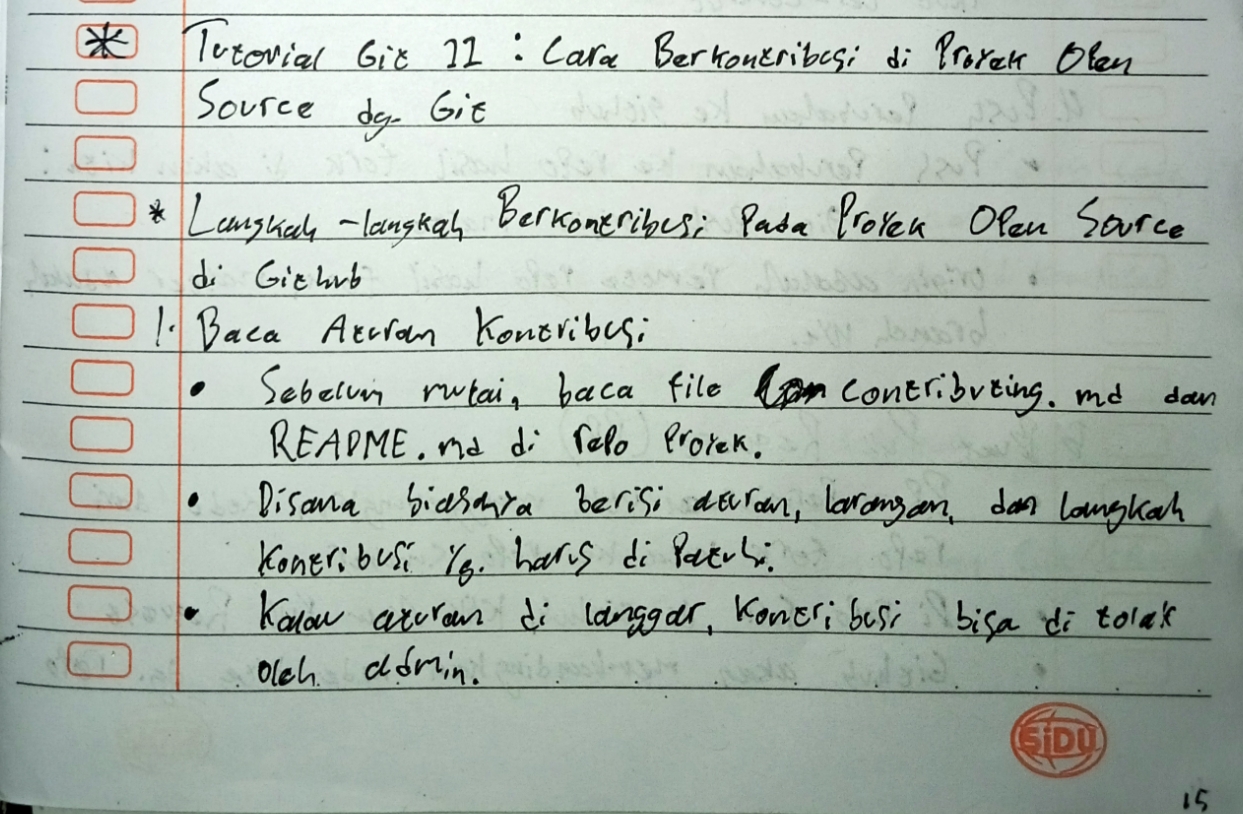 * Tutorial Git 11 : Cara Berkontribusi di Proyek Open
Source dg. Git
* Langkah-langkah Berkontribusi Pada Proyek Open Source
di Github
1. Baca Aturan Kontribusi
• Sebelum mulai, baca file contributing.md dan
README.md di repo Proyek.
• Disana biasanya berisi aturan, larangan, dan langkah
Kontribusi yg. harus di Patuhi.
• Kalau aturan di langgar, Kontribusi bisa di tolak
oleh admin.
SiDU
15